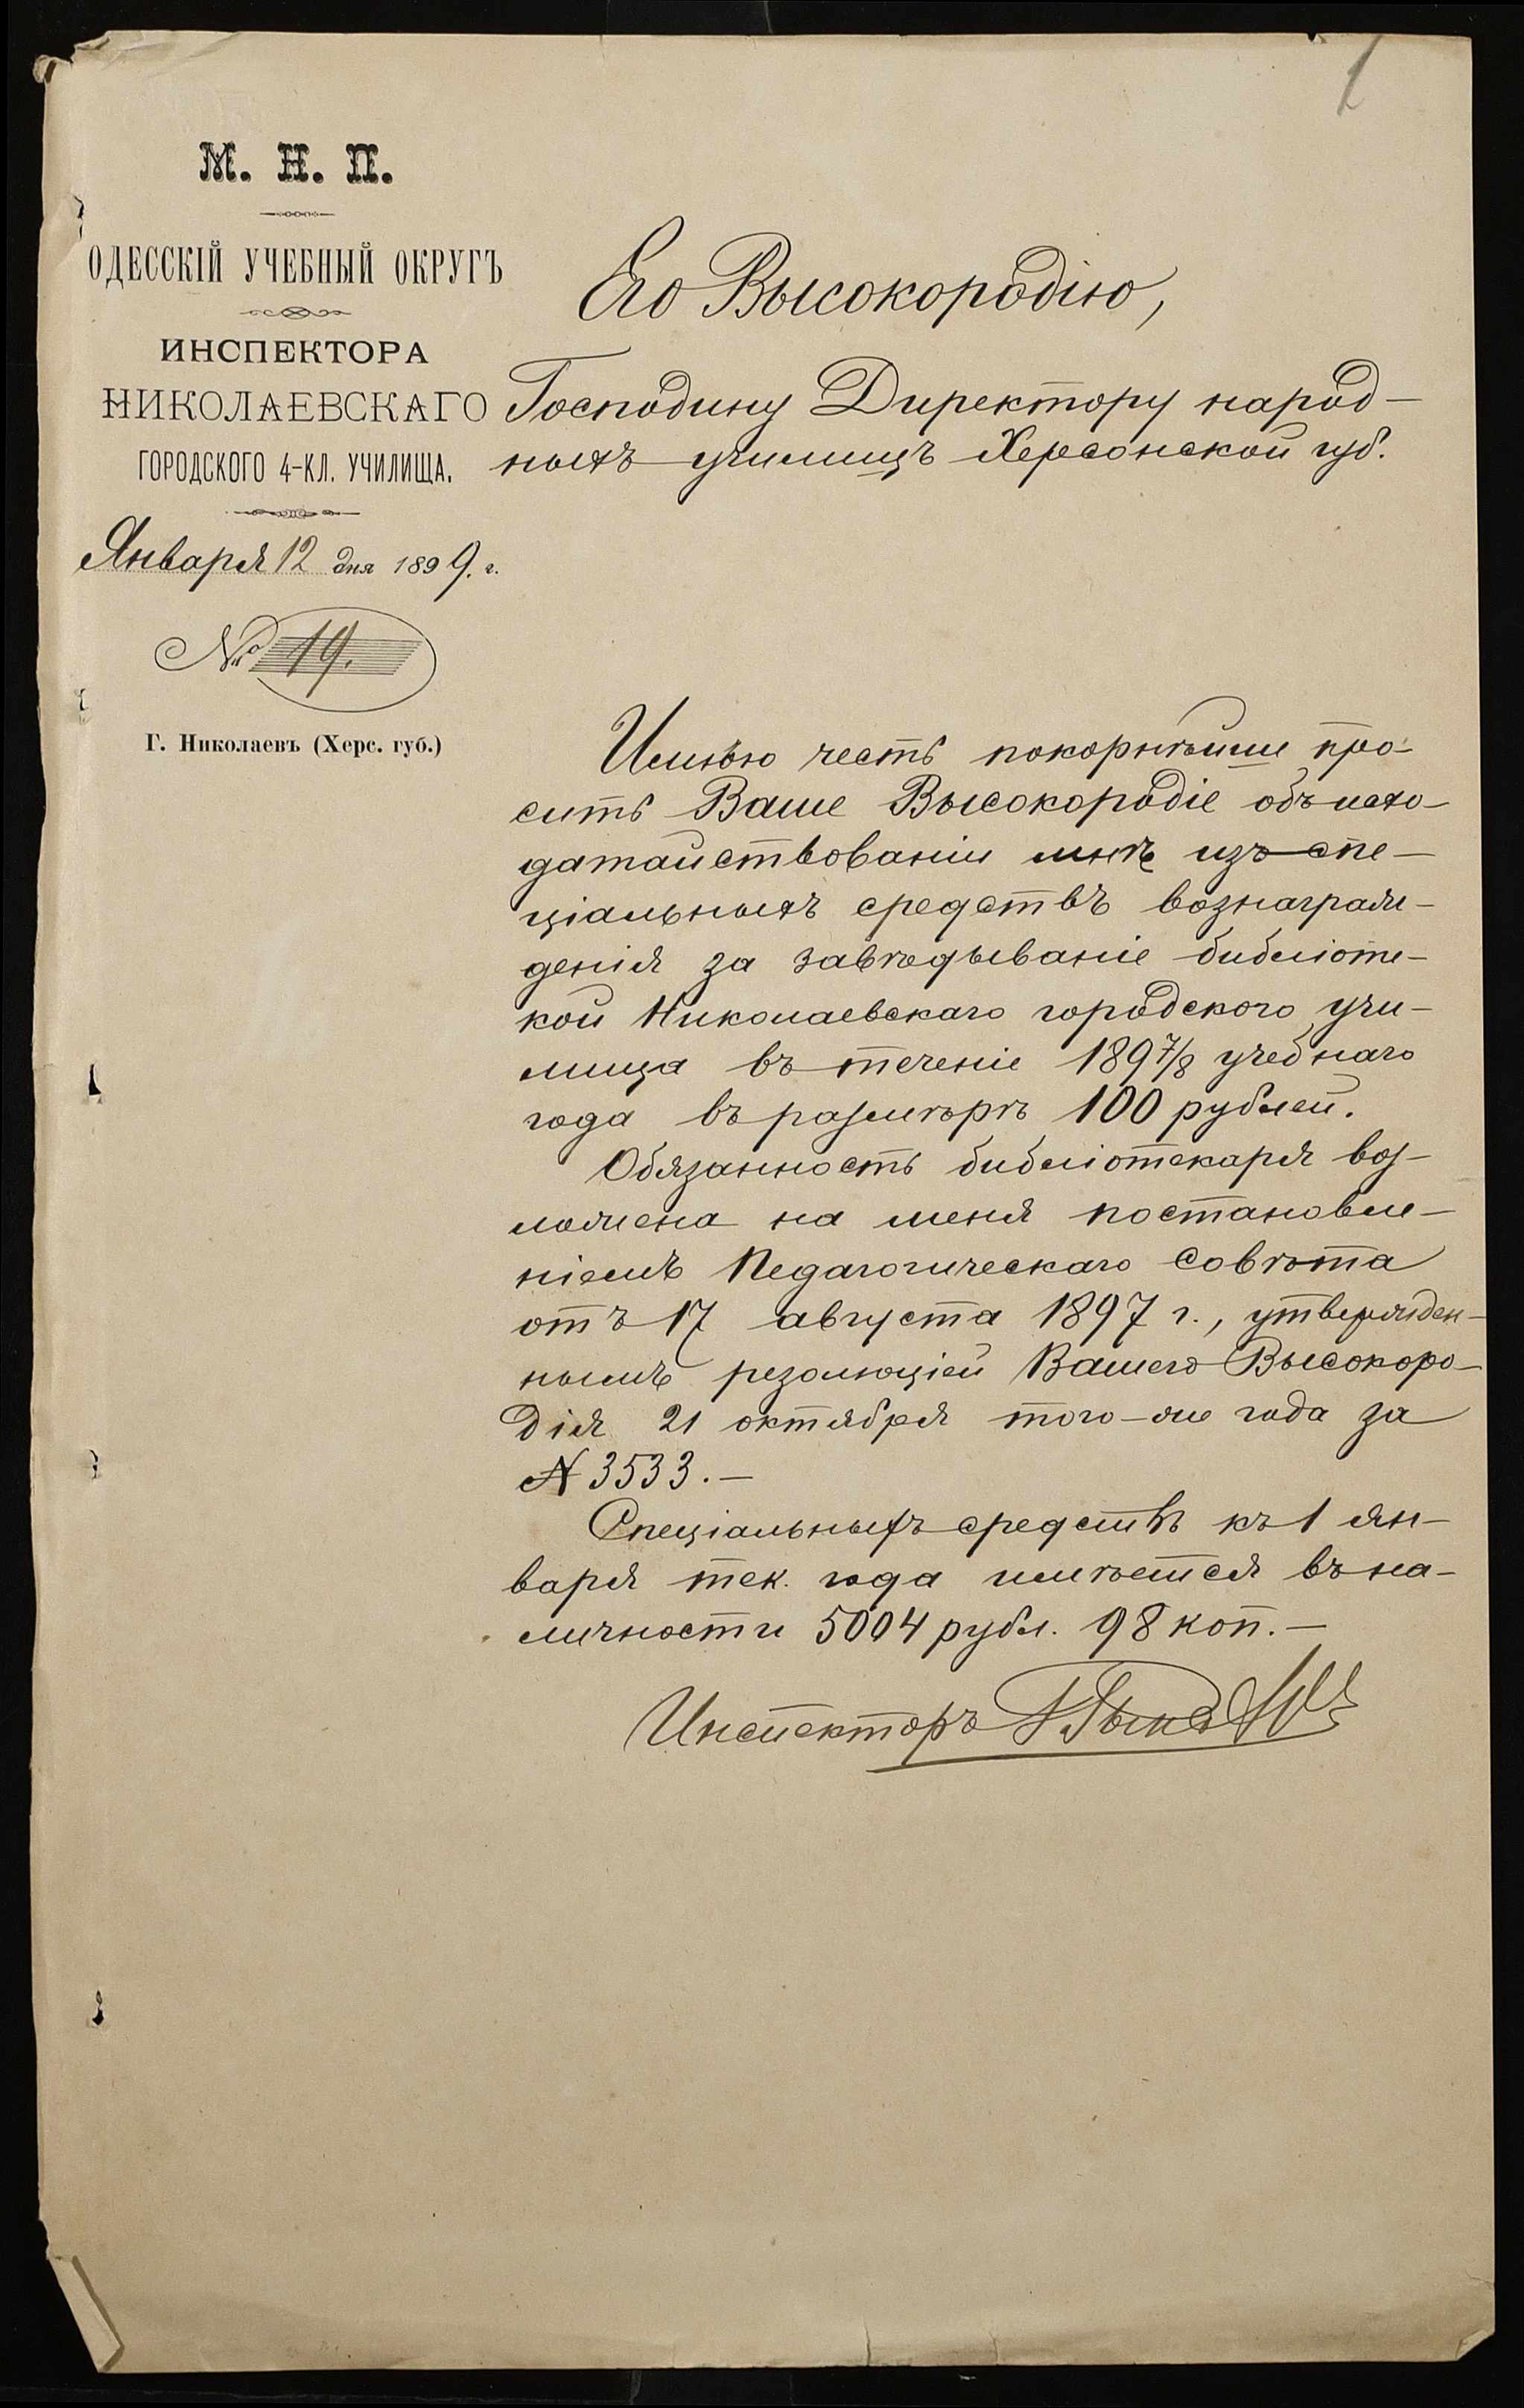 1
М. Н. П.
ОДЕССКІЙ УЧЕБНЫЙ ОКРУГЪ
ИНСПЕКТОРА
НИКОЛАЕВСКАГО
ГОРОДСКОГО 4-КЛ. УЧИЛИЩА.
Января 12 дня 1899. г.
№ 19.
Г. Николаевъ (Херс. губ.)
Его Высокородію,
Господину Директору народ-
ныхъ училищъ Херсонской губ.
Имѣю честь покорнѣйше про-
сить Ваше Высокородіе объ исхо-
датайствованіи мнѣ изъ спе-
ціальныхъ средствъ вознаграж-
денія за завѣдываніе библіоте-
кой Николаевскаго городского учи-
лища въ теченіе 1897/8 учебнаго
года въ размѣрѣ 100 рублей.
Обязанность библіотекаря воз-
ложена на меня постановле-
ніемъ Педагогическаго Совѣта
отъ 17 августа 1897 г., утвержден-
нымъ резолюціей Вашего Высокоро-
дія 21 октября того-же года за
№ 3533.—
Спеціальныхъ средствъ къ 1 ян-
варя тек. года имѣется въ на-
личности 5004 рубл. 98 коп.—
Инспекторъ